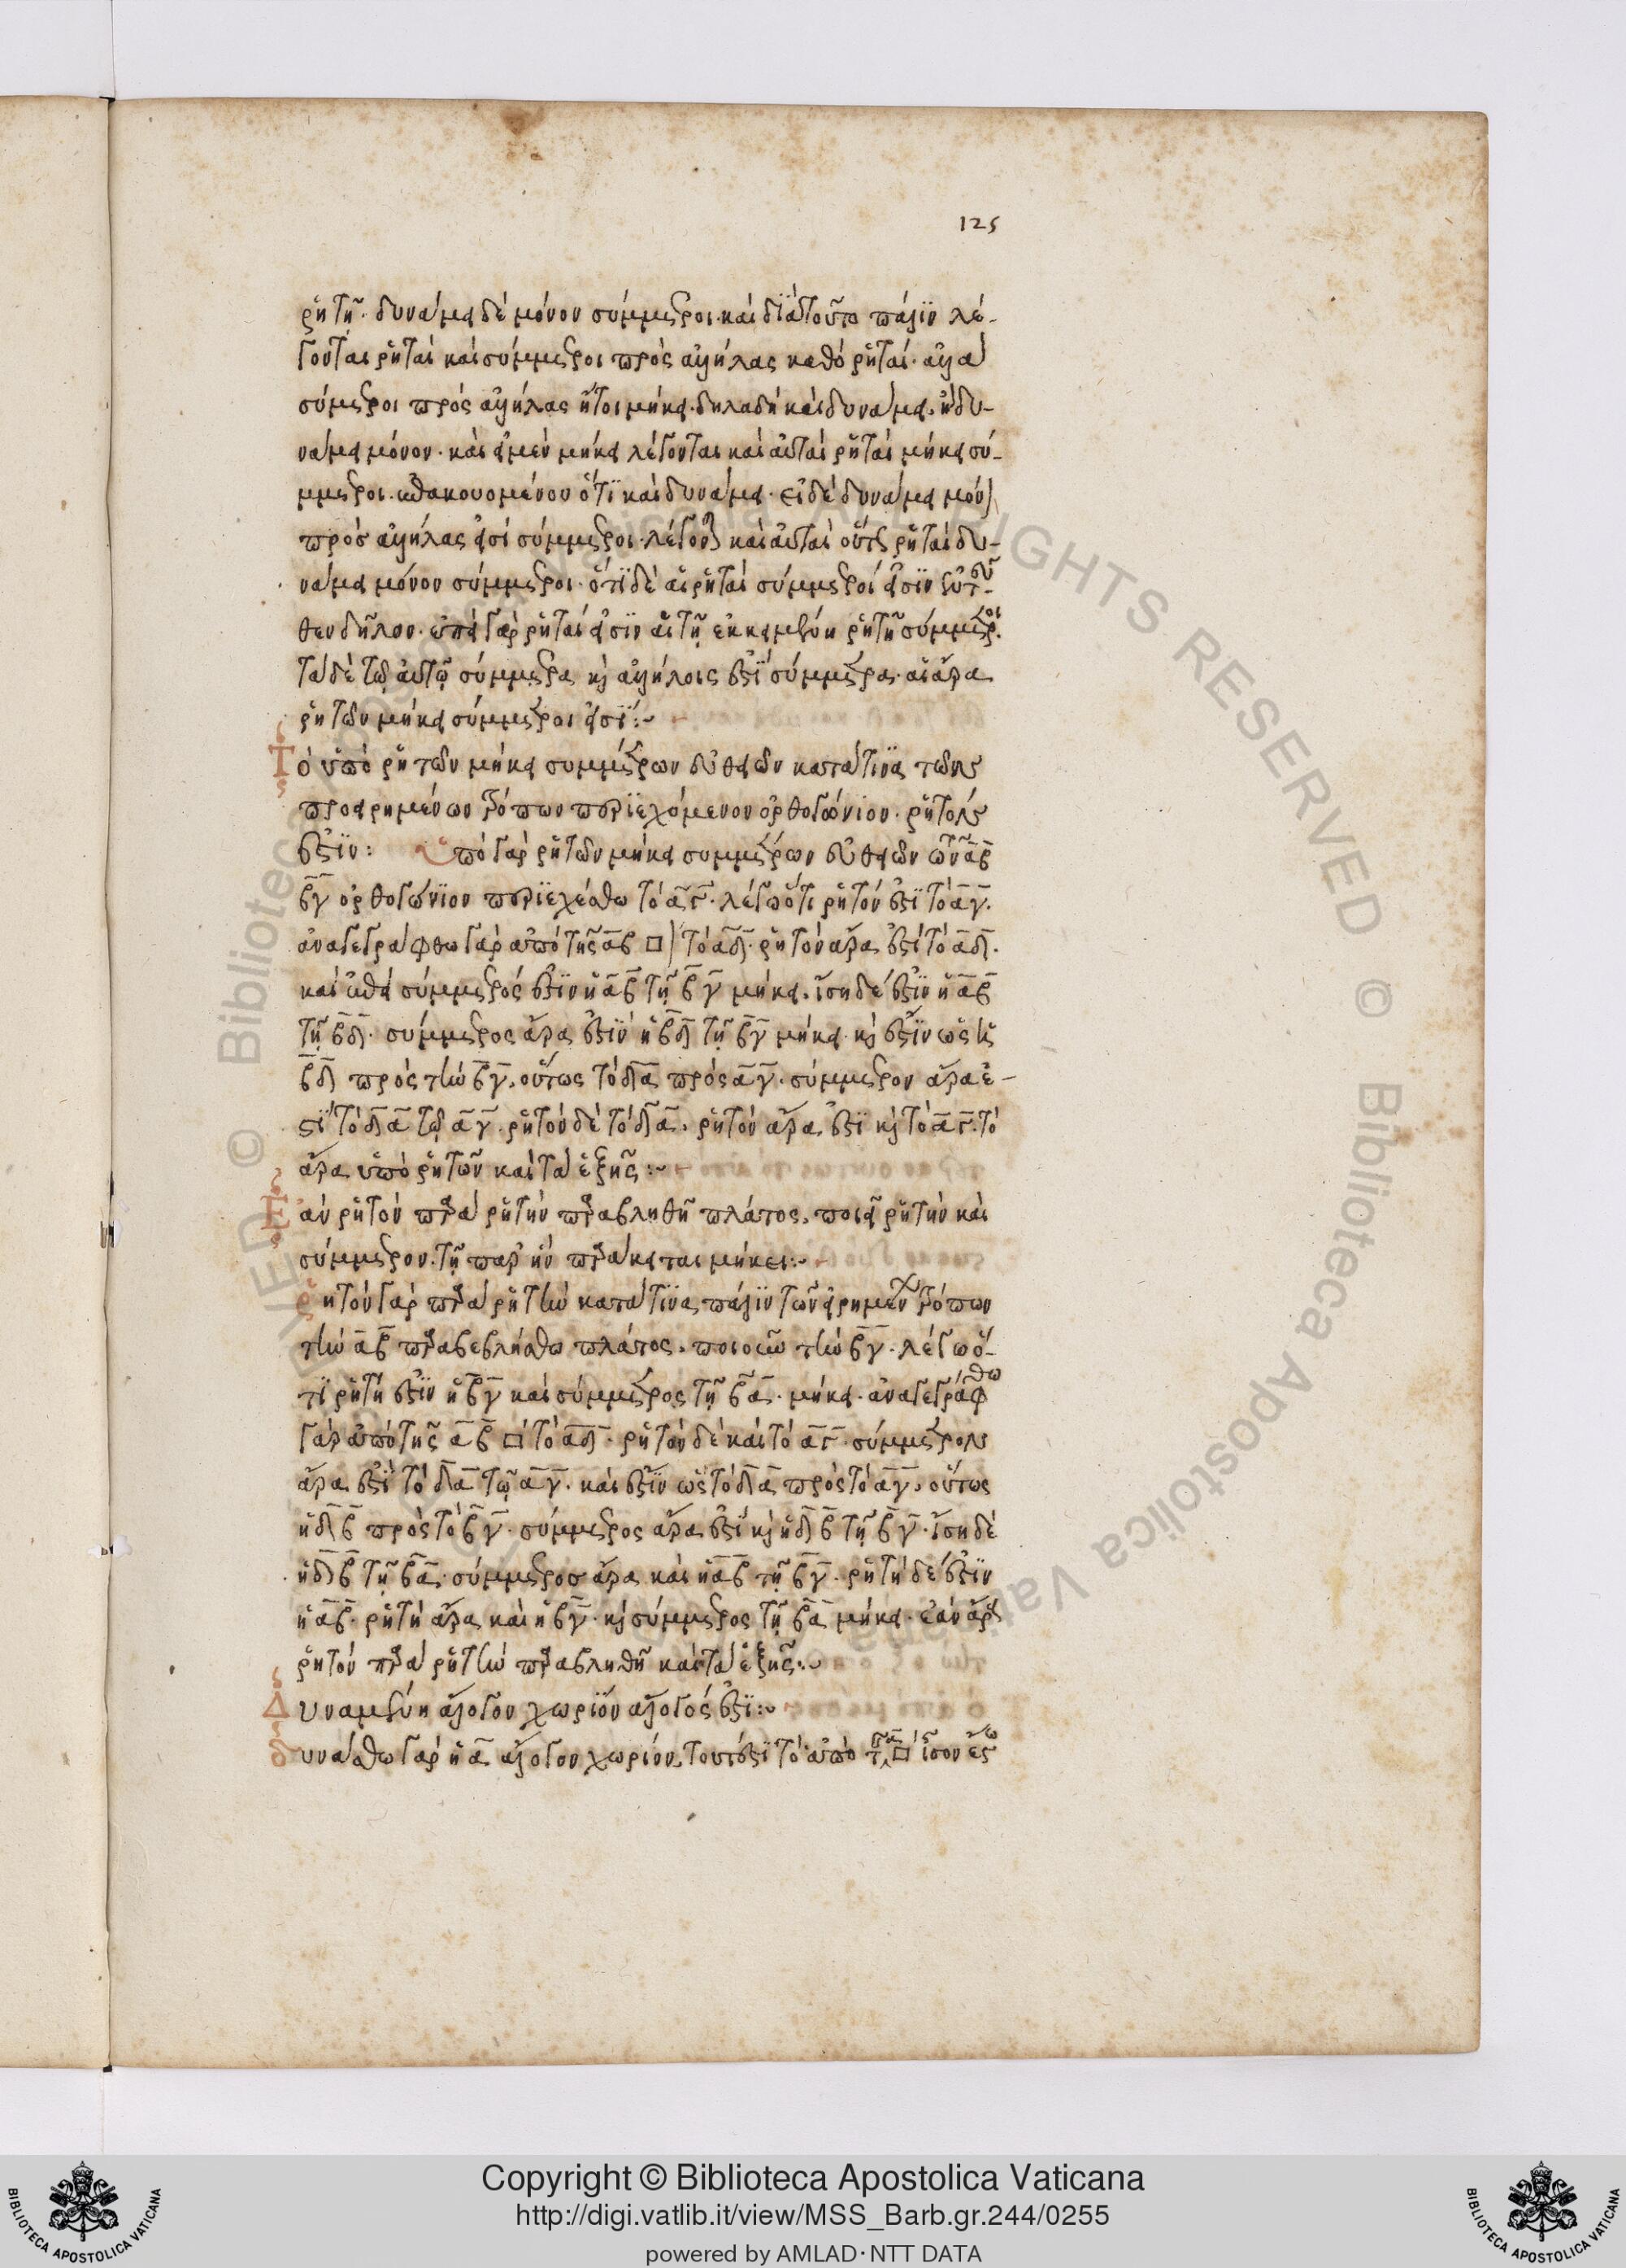 125
ῥητῆ· δυνάμει δὲ μόνον σύμμετροι· καὶ διατοῦτο πάλϊν λέ-
γονται ῥηταὶ καὶ σύμμετροι πρὸς ἀλλήλας καθὸ ῥηταί· ἀλλὰ
σύμετροι πρὸς ἀλλήλας ἤτοι μήκει· δηλαδὴ καὶ δυνάμει· ἢ δυ-
νάμει μόνον· καὶ εἰ μὲν μήκει λέγονται καὶ αὐταὶ ῥηταὶ μήκει σύ-
μμετροι· ἐπακουομένου ὅτϊ καὶ δυνάμει· εἰ δὲ δυνάμει μόνον
πρὸσ ἀλλήλας εἰσὶ σύμμετροι· λέγονται καὶ αὐταὶ οὕτως ῥηταὶ δυ-
νάμει μόνον σύμμετροι· ὅτϊ δὲ αἱ ῥηταὶ σύμμετροί εἰσϊν ἐντεῦ-
θεν δῆλον· ἐπεὶ γὰρ ῥηταί εἰσϊν αἱ τῆ ἐκκειμένη ῥητῆ σύμμετροι·
τὰ δὲ τῶ αὐτῶ σύμμετρα καὶ ἀλλήλοις ἐστὶ σύμμετρα· αἱ ἄρα
ῥητῶν μήκει σύμμετροι εἰσΐ:~
Τὸ ὑπὸ ῥητῶν μήκει συμμέτρων εὐθειῶν κατά τινα τῶν
προειρημένων τρόπων περϊεχόμενον ὀρθογώνιον· ῥητόν
ἐστϊν: Ὑπὸ γὰρ ῥητῶν μήκει συμμέτρων εὐθειῶν τῶν α̅β̅
β̅γ̅ ὀρθογώνϊον περϊεχέσθω τὸ α̅γ̅· λέγω ὅτι ῥητόν ἐστϊ τὸ α̅γ̅·
ἀναγεγράφθω γὰρ ἀπὸ τῆς α̅β̅ □ τὸ α̅δ̅· ῥητὸν ἄρα ἐστὶ τὸ α̅δ̅·
καὶ ἐπεὶ σύμμετρός ἐστϊν ἡ α̅β̅ τῆ β̅γ̅ μήκει· ἴση δέ ἐστϊν ἡ α̅β̅
τῆ β̅δ̅· σύμμετρος ἄρα ἐστϊν ἡ β̅δ̅ τῆ β̅γ̅ μήκει· καὶ ἔστϊν ὡς ἡ
β̅δ̅ πρὸς τὴν β̅γ̅· οὕτως τὸ δ̅α̅ πρὸς α̅γ̅· σύμμετρον ἄρα ἐ-
στϊ τὸ δ̅α̅ τῶ α̅γ̅· ῥητὸν δὲ τὸ δ̅α̅· ῥητὸν ἄρα ἐστϊ καὶ τὸ α̅γ̅· τὸ
ἄρα ὑπὸ ῥητῶν καὶ τὰ ἑξῆς:~
Ἐὰν ῥητὸν παρὰ ῥητὴν παραβληθῆ πλάτος· ποιεῖ ῥητὴν καὶ
σύμμετρον· τῆ παρ' ἣν παράκειται μήκει:~
ῥητὸν γὰρ παρὰ ῥητὴν κατά τϊνα πάλϊν τῶν εἰρημένων τρόπων
τὴν α̅β̅ παραβεβλήσθω πλάτος· ποιοῦν τὴν β̅γ̅· λέγω ὅ-
τϊ ῥητή ἐστϊν ἡ β̅γ̅ καὶ σύμμετρος τῆ β̅α̅· μήκει· ἀναγεγράφθω
γὰρ ἀπὸ τῆς α̅β̅ □ τὸ α̅δ̅· ῥητὸν δὲ καὶ τὸ α̅γ̅· σύμμετρον
ἄρα ἐστϊ τὸ δ̅α̅ τῶ α̅γ̅· καὶ ἔστϊν ὡς τὸ δ̅α̅ πρὸς τὸ α̅γ̅· οὕτως
ἡ δ̅β̅ πρὸς τὸ β̅γ̅· σύμμετρος ἄρα ἐστϊ καὶ ἡ δ̅β̅ τῆ β̅γ̅· ἴση δὲ
ἡ δ̅β̅ τῆ β̅α̅· σύμμετροσ ἄρα καὶ ἡ α̅β̅ τῆ β̅γ̅· ῥητὴ δέ ἐστϊν
ἡ α̅β̅· ῥητὴ ἄρα καὶ ἡ β̅γ̅· καὶ σύμμετρος τῆ β̅α̅ μήκει· ἐὰν ἄρα
ῥητὸν παρὰ ῥητὴν παραβληθῆ καὶ τὰ ἑξῆς:~
Δυναμένη ἄλογον χωρϊον ἄλογός ἐστϊ:~
δυνάσθω γὰρ ἡ α̅ ἄλογον χωρίον· τουτέστϊ τὸ ἀπὸ τῆς α̅ □ ἴσον ἔστω
Copyright © Biblioteca Apostolica Vaticana
http://digi.vatlib.it/view/MSS_Barb.gr.244/0255
powered by AMLAD·NTT DATA